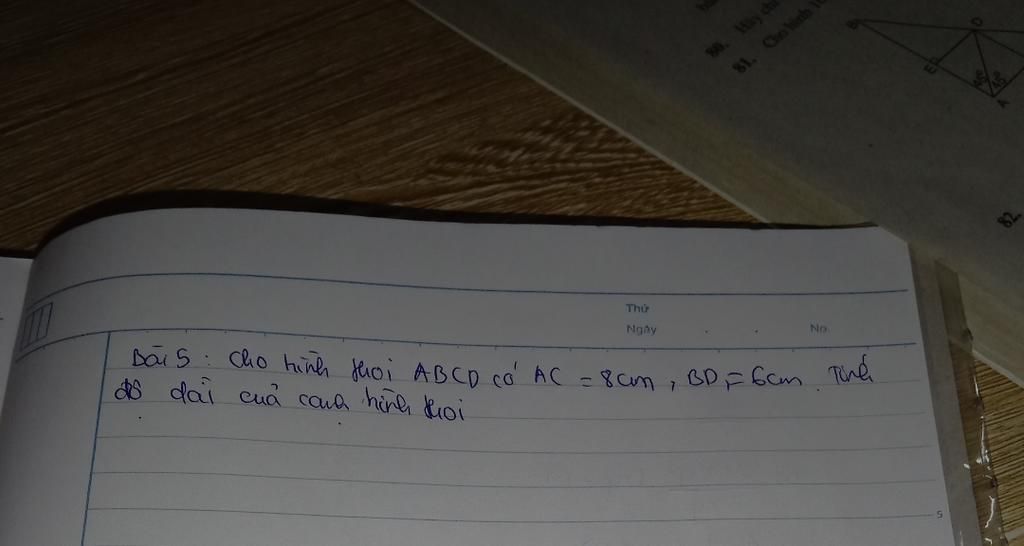 80. Hãy
81. Cho hình
B
D
E
A
82.
Thứ
Ngày . . No.
Bài 5 : Cho hình thoi ABCD có AC = 8cm , BD = 6cm . Tính
độ dài của cạnh hình thoi
5